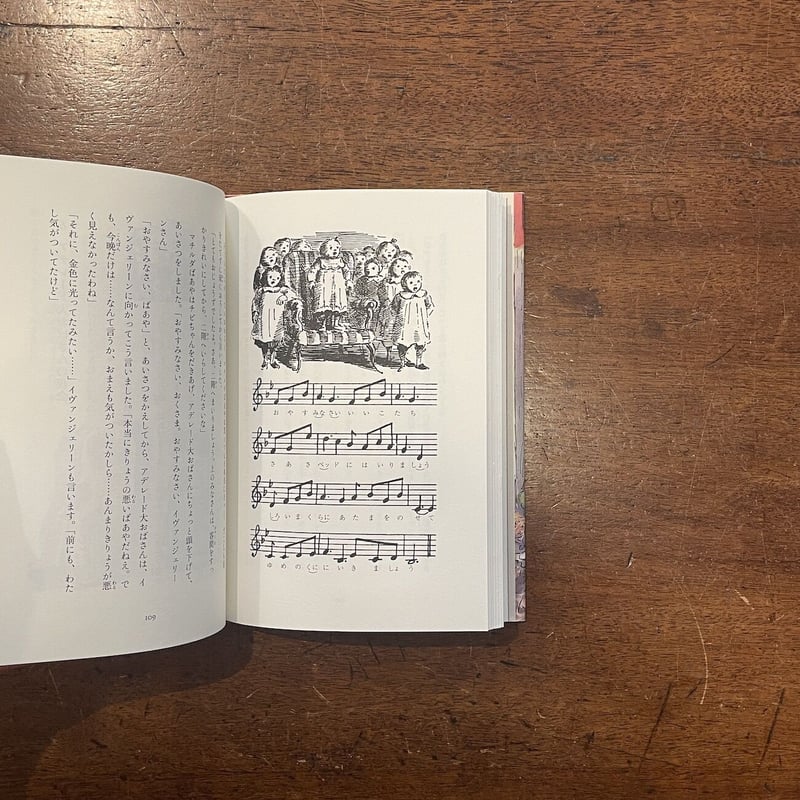 「とてもおじょうずでしたよ。さあ、二階へまいりましょう。上のみなさんは、客間をすっ
かりきれいにしてから、二階へいらしてくださいな」
マチルダばあやはチビちゃんをだきあげ、アデレード大おばさんにちょっと頭を下げて、
あいさつをしました。「おやすみなさい、おくさま。おやすみなさい、イヴァンジェリー
ンさん」
「おやすみなさい、ばあや」と、あいさつをかえしてから、アデレード大おばさんは、イ
ヴァンジェリーンに向かってこう言いました。「本当にきりょうの悪いばあやだねえ。で
も、今晩だけは……なんて言うか、おまえも気がついたかしら……あんまりきりょうが悪
く見えなかったわね」
「それに、金色に光ってたみたい……」イヴァンジェリーンも言います。「前にも、わた
し気がついてたけど」
109
おやすみなさいいいこたち
さあさベッドにはいりましょう
しろいまくらにあたまをのせて
ゆめのくににいきましょう